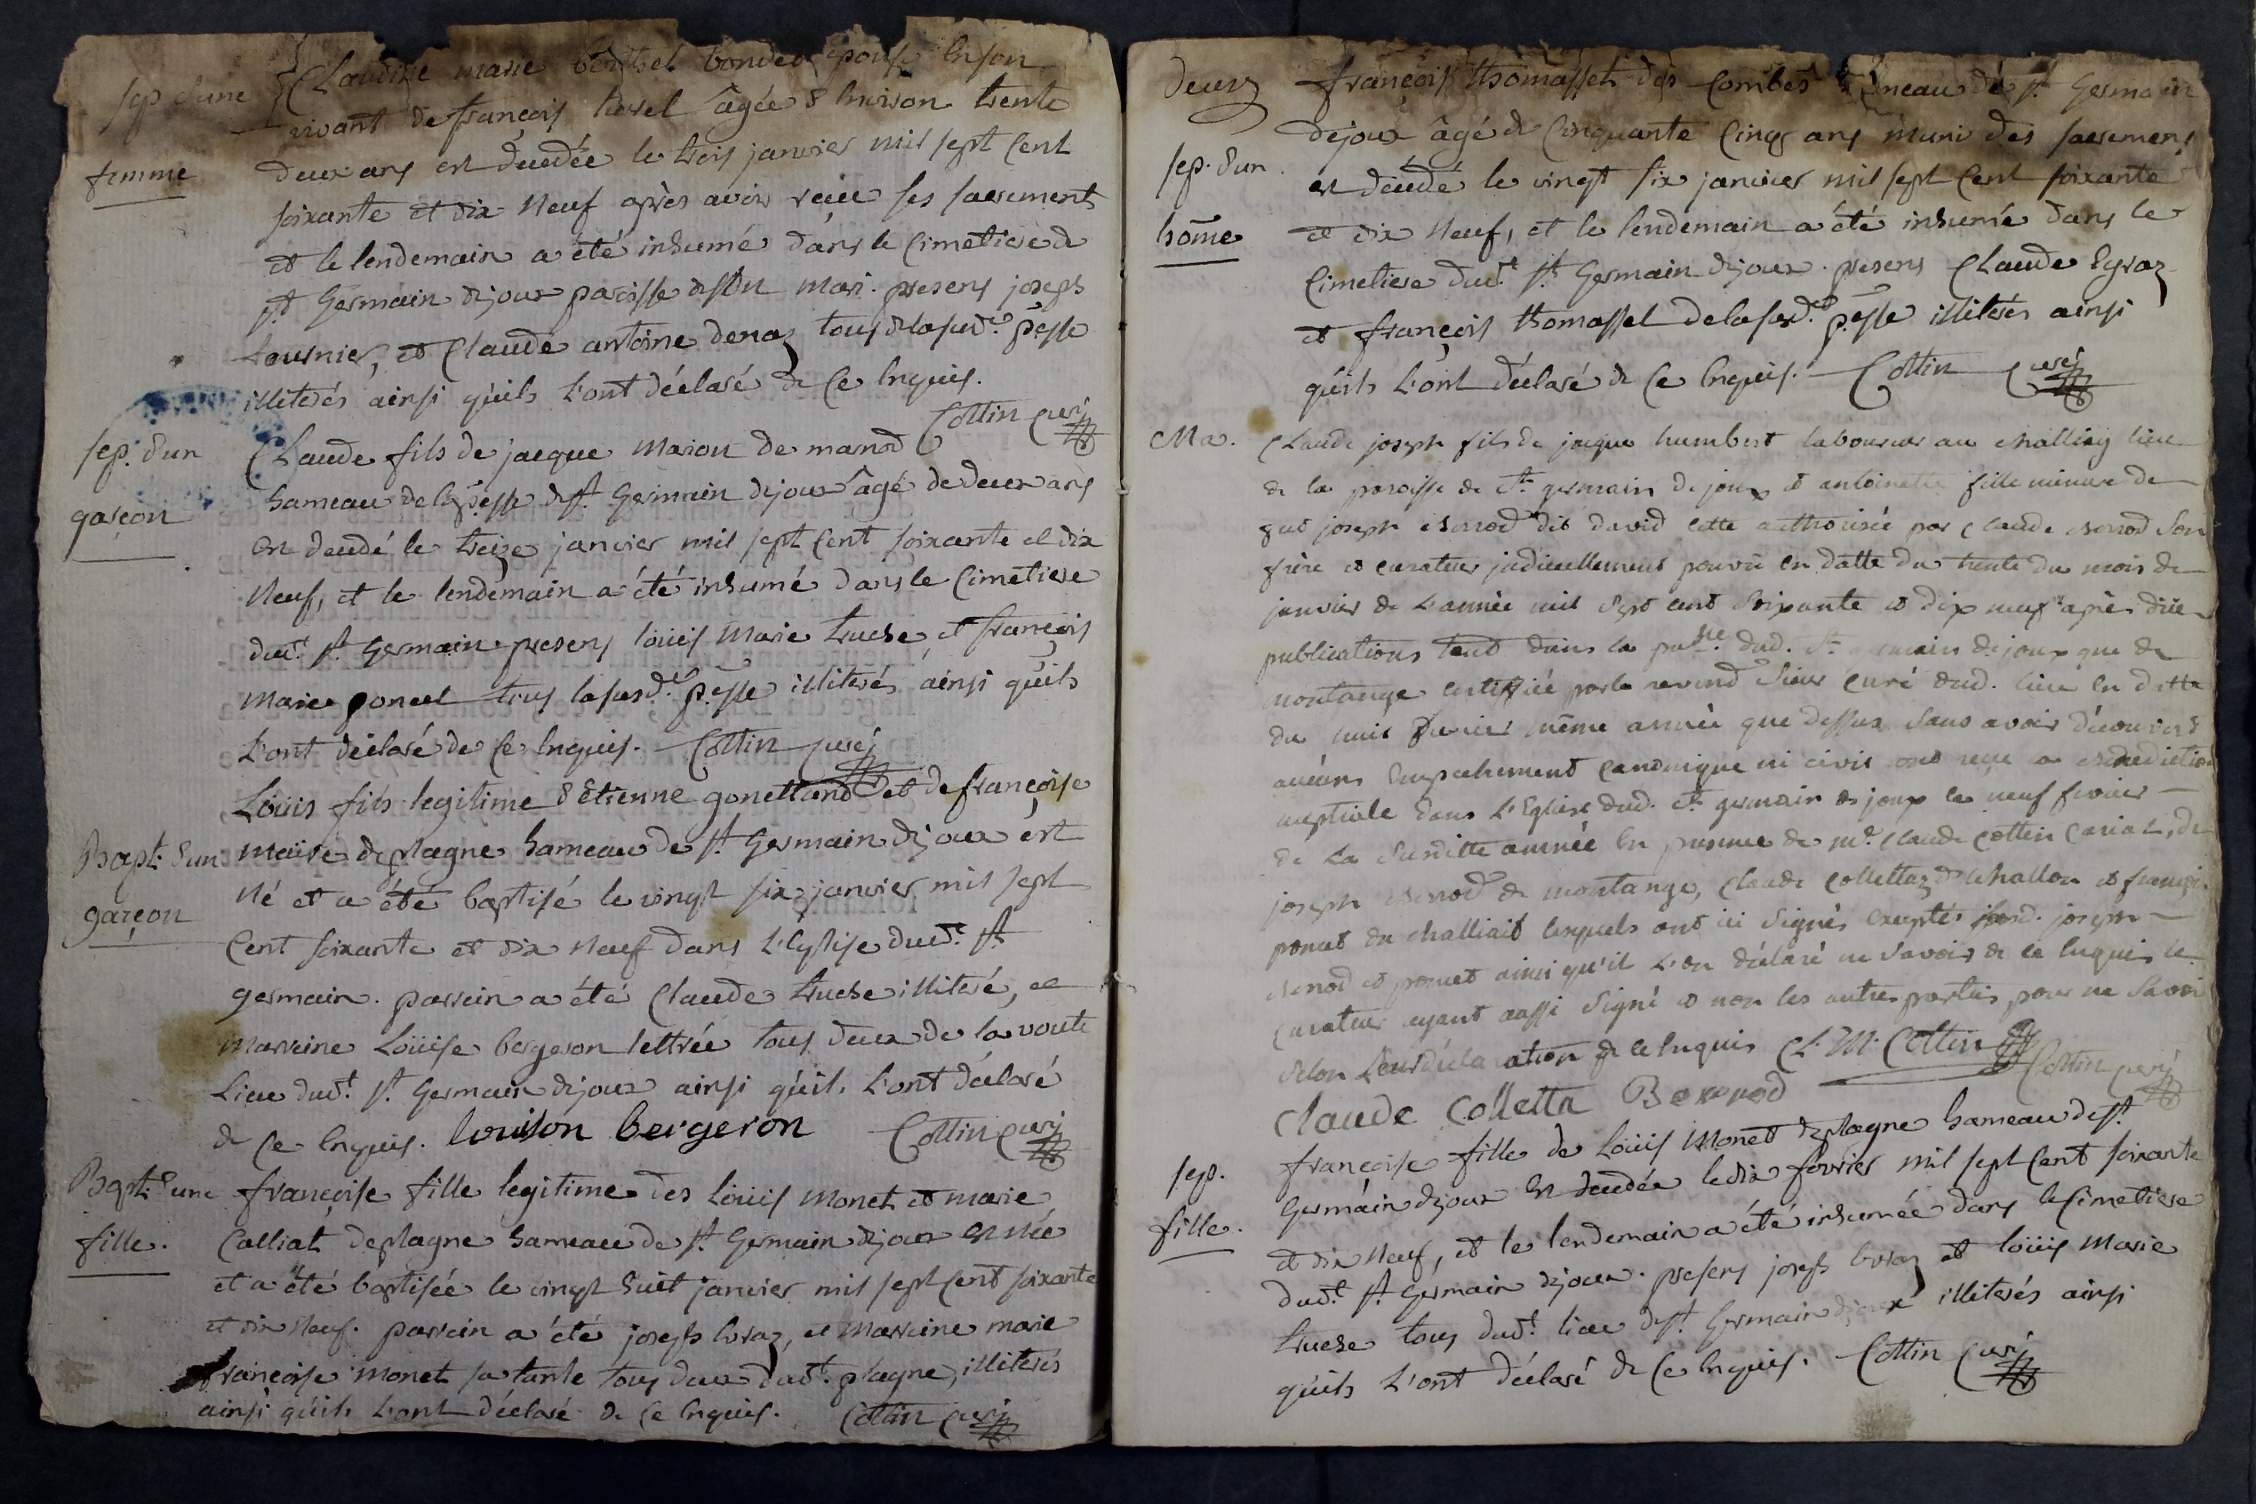 Sep d'une
femme
Claudine marie bonded epouse en son
vivant de françois turel âgée d'environ trente
deux ans est decedée le trois janvier mil sept cent
soixante et dix neuf après avoir reçue ses sacrements
et le lendemain a été inhumé dans le cimetiere de
st Germain dejoux paroisse de son mari. presens joseph
tournier, et Claude antoine denaz tous de la susd.e p.esse
illiterés ainsi qu'ils l'ont déclaré de ce enquis.
Cottin curé
sep. d'un
garçon
Claude fils de jacque marion de marnod
hameau de la p.esse de st. Germain dejoux âgé de deux ans
est decedé le treize janvier mil sept cent soixante et dix
neuf, et le lendemain a été inhumé dans le cimetiere
dud.t st. Germain presens loüis marie truche, et françois
marie poncet tous la susd.e p.esse illiterés ainsi qu'ils
l'ont déclaré de ce enquis. Cottin curé
Bapt. d'un
garçon
Loüis fils legitime d'Etienne gonettand et de françoise
maire de plagne hameau de st. Germain dejoux est
né et a été baptisé le vingt six janvier mil sept
cent soixante et dix neuf dans l'Eglise dud.t st.
germain. parrein a été Claude truche illiteré, et
marreine Loüise bergeron lettrée tous deux de la voute
lieu dud.t st. Germain dejoux ainsi qu'ils l'ont déclaré
de ce enquis. louison bergeron Cottin curé
Bapt. d'une
fille.
françoise fille legitime des Loüis monet et marie
Calliat de plagne hameau de st. Germain dejoux est née
et a été baptisée le vingt huit janvier mil sept cent soixante
et dix neuf. parrein a été joseph buraz, et marreine marie
françoise monet sa tante tous deux dud.t plagne, illiterés
ainsi qu'ils l'ont déclaré de ce enquis. Cottin curé
deux
sep. d'un
home
françois thomasset des Combes hameau de st. Germain
dejoux âgé de Cinquante Cinq ans muni des sacremens
est decedé le vingt six janvier mil sept cent soixante
et dix neuf, et le lendemain a été inhumé dans le
Cimetiere dud.t st. Germain dejoux. presens Claude Egraz
et françois thomasset de la susd.e p.esse illiterés ainsi
qu'ils l'ont déclaré de ce enquis. Cottin curé
Ma.
Claude joseph fils de jacque humbert laboureur au challiey lieu
de la paroisse de st. germain de joux et antoinette fille mineure de
feu joseph bernod dit david cette authorisée par Claude bernod son
frère et curateur judiciellement pourvu en datte du trente du mois de
janvier de l'année mil sept cent soixante et dix neuf après due
publications tant dans la p.sse dud. st. germain de joux que de
montange certiffiée par le reverend Sieur curé dud. lieu en datte
du huit fevrier même année que dessus sans avoir découvert
aucuns empechement canonique ni civil ont reçu la benediction
nuptiale dans l'Eglise dud. st. germain de joux le neuf fevrier
de La Susditte année en presence de m.e Claude Cottin
joseph bernod de montange, Claude Collettaz de challon et françois
poncet du challiait lesquels ont ici Signés exceptés led. joseph
bernod et poncet ainsi qu'il l'on déclaré ne savoir de ce enquis le
Curateur ayant aussi Signé et non les autres parties pour ne Savoir
Selon leur déclaration de ce enquis Cl. M. Cottin
Claude Colletta Bernod Cottin curé
sep.
fille.
françoise fille de Loüis monet de plagne hameau de st.
Germain dejoux est decedée le dix fevrier mil sept cent soixante
et dix neuf, et le lendemain a été inhumée dans le Cimetiere
dud.t st. Germain dejoux. presens joseph buraz et loüis marie
truche tous dud.t lieu de st. Germain dejoux illiterés ainsi
qu'ils l'ont déclaré de ce enquis. Cottin curé